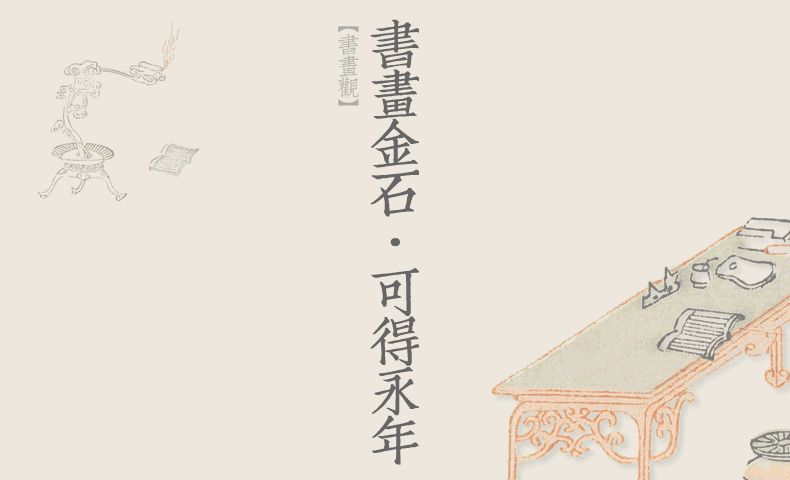 書畫金石·可得永年
【書畫觀】